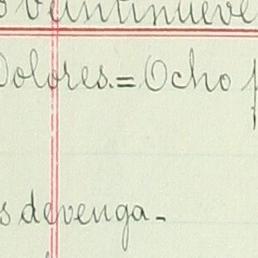 veintinueve
Dolores.=Ocho
s devenga-